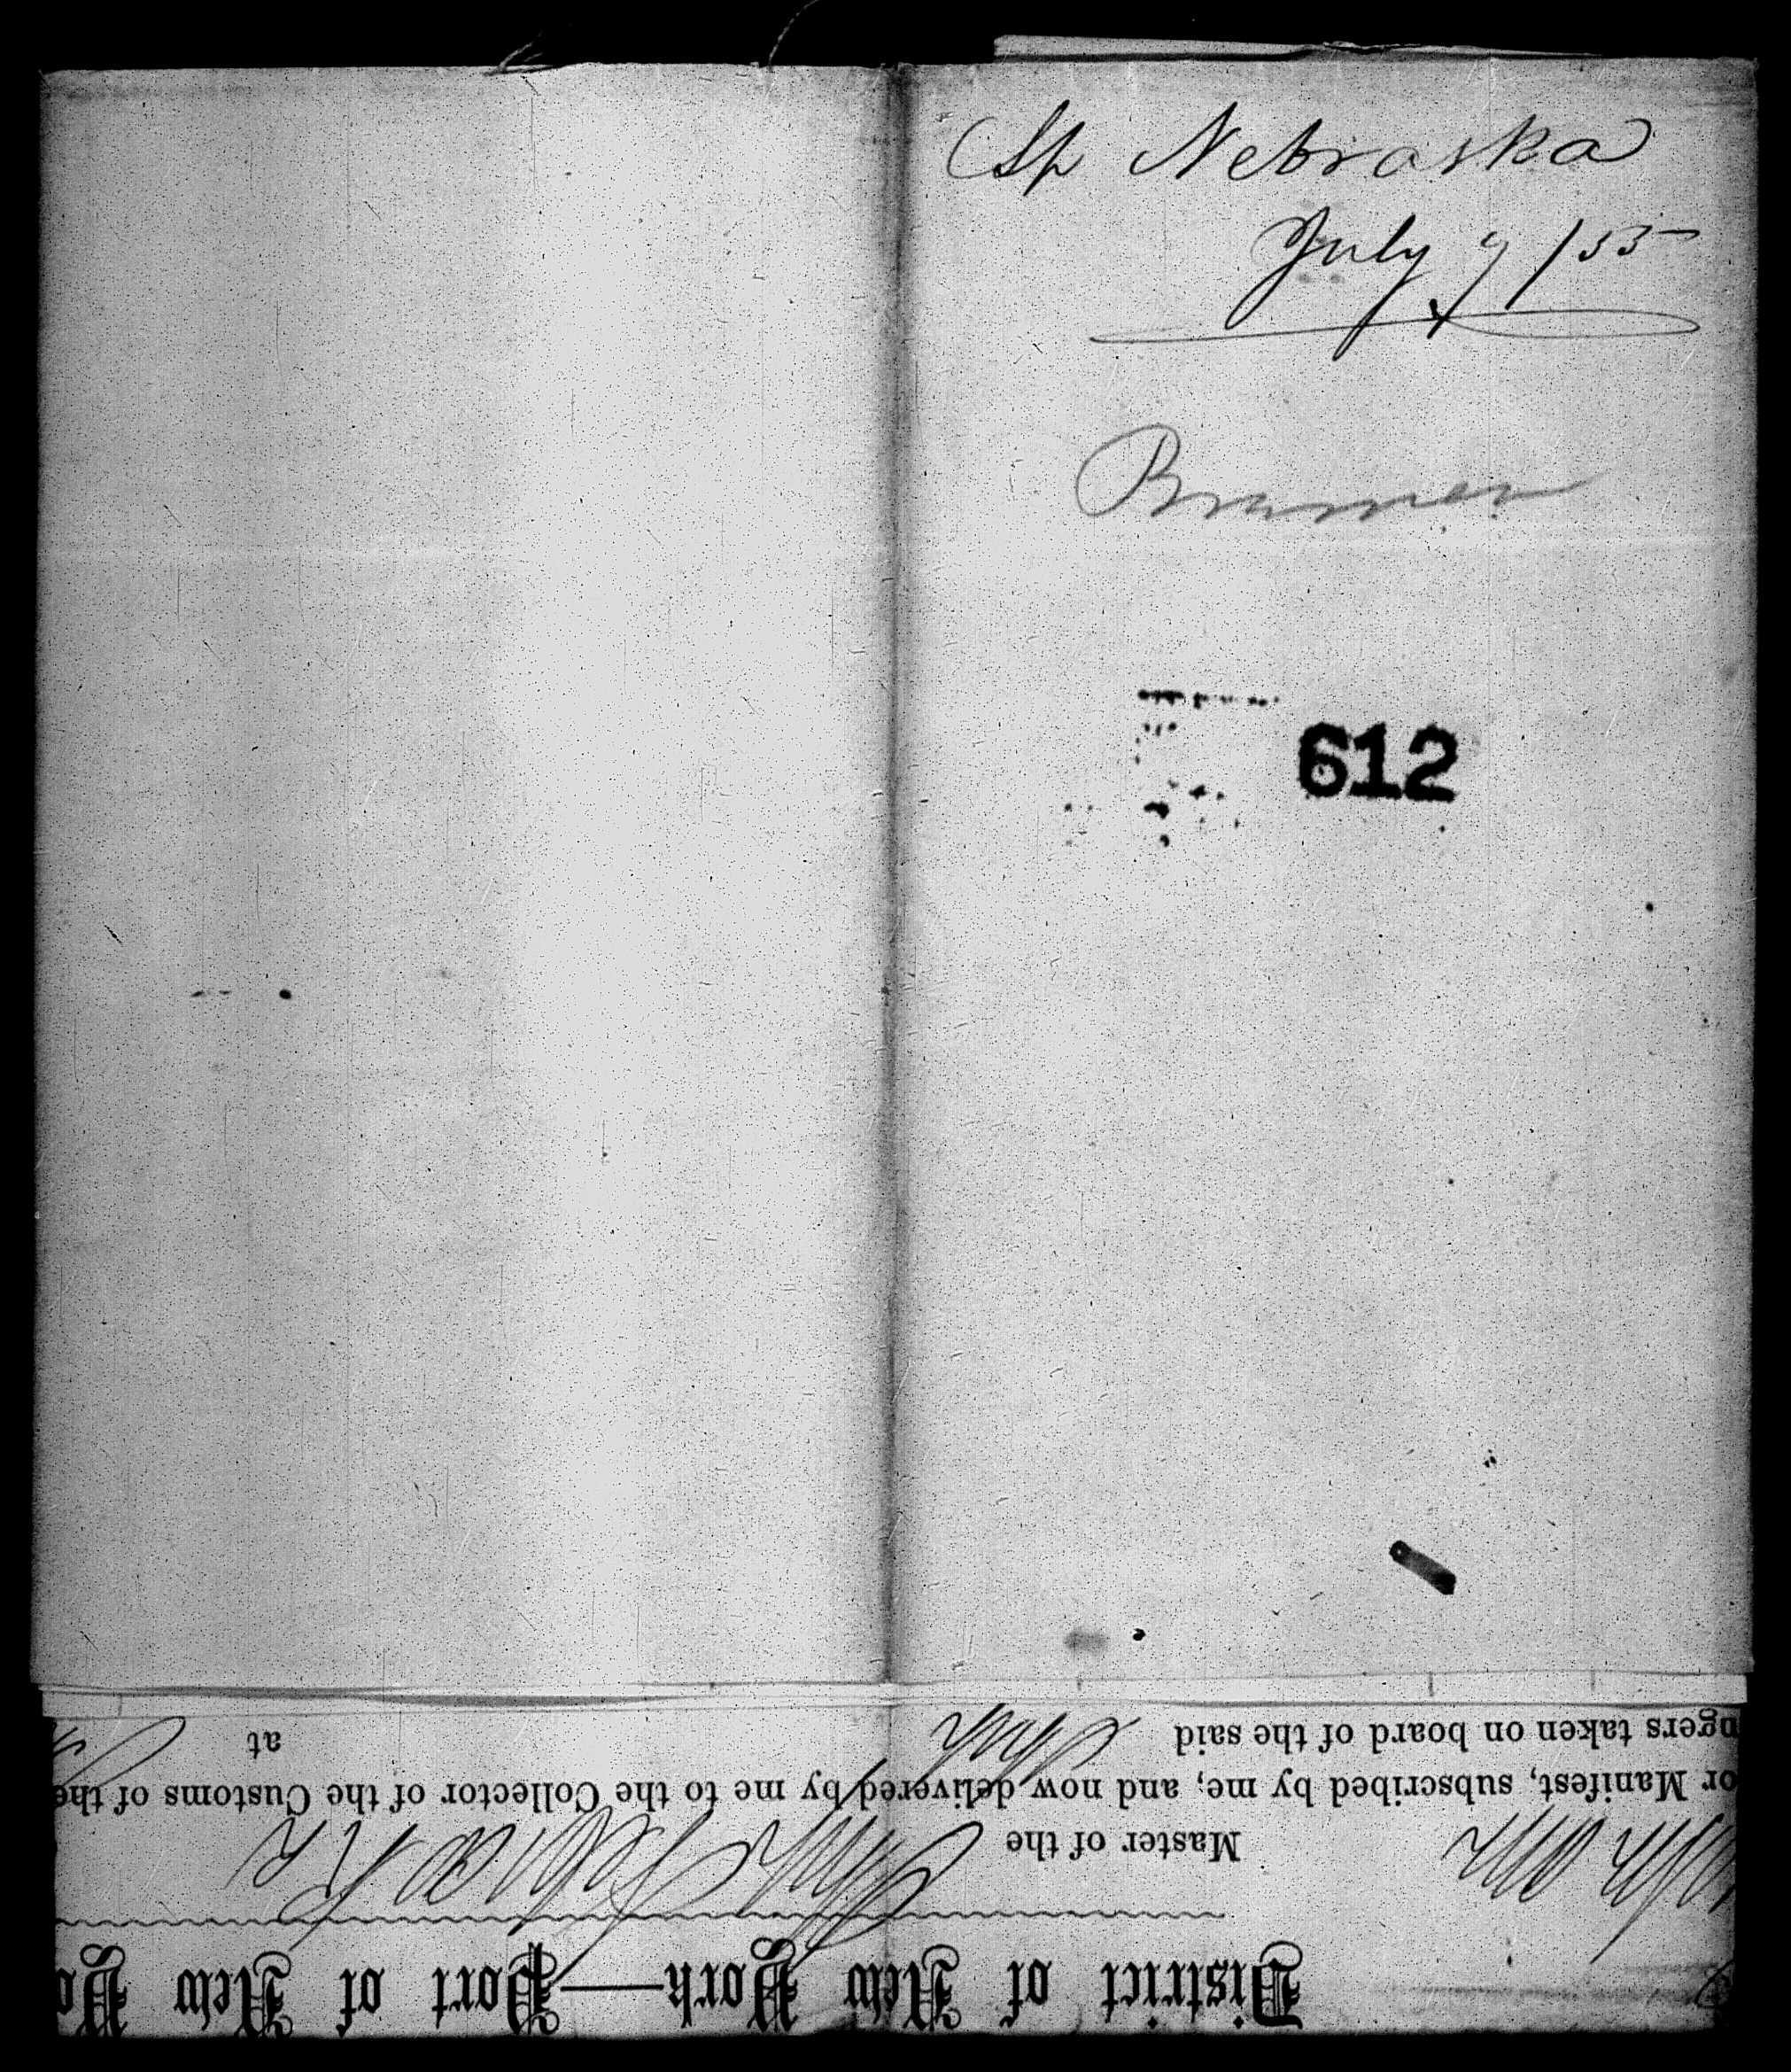 Sp Nebraska
July 9/55
Bremen
612
District of New York—Port of New Yo
Master of the Ship Nebraska
or Manifest, subscribed by me, and now delivered by me to the Collector of the Customs of the
ngers taken on board of the said Ship at